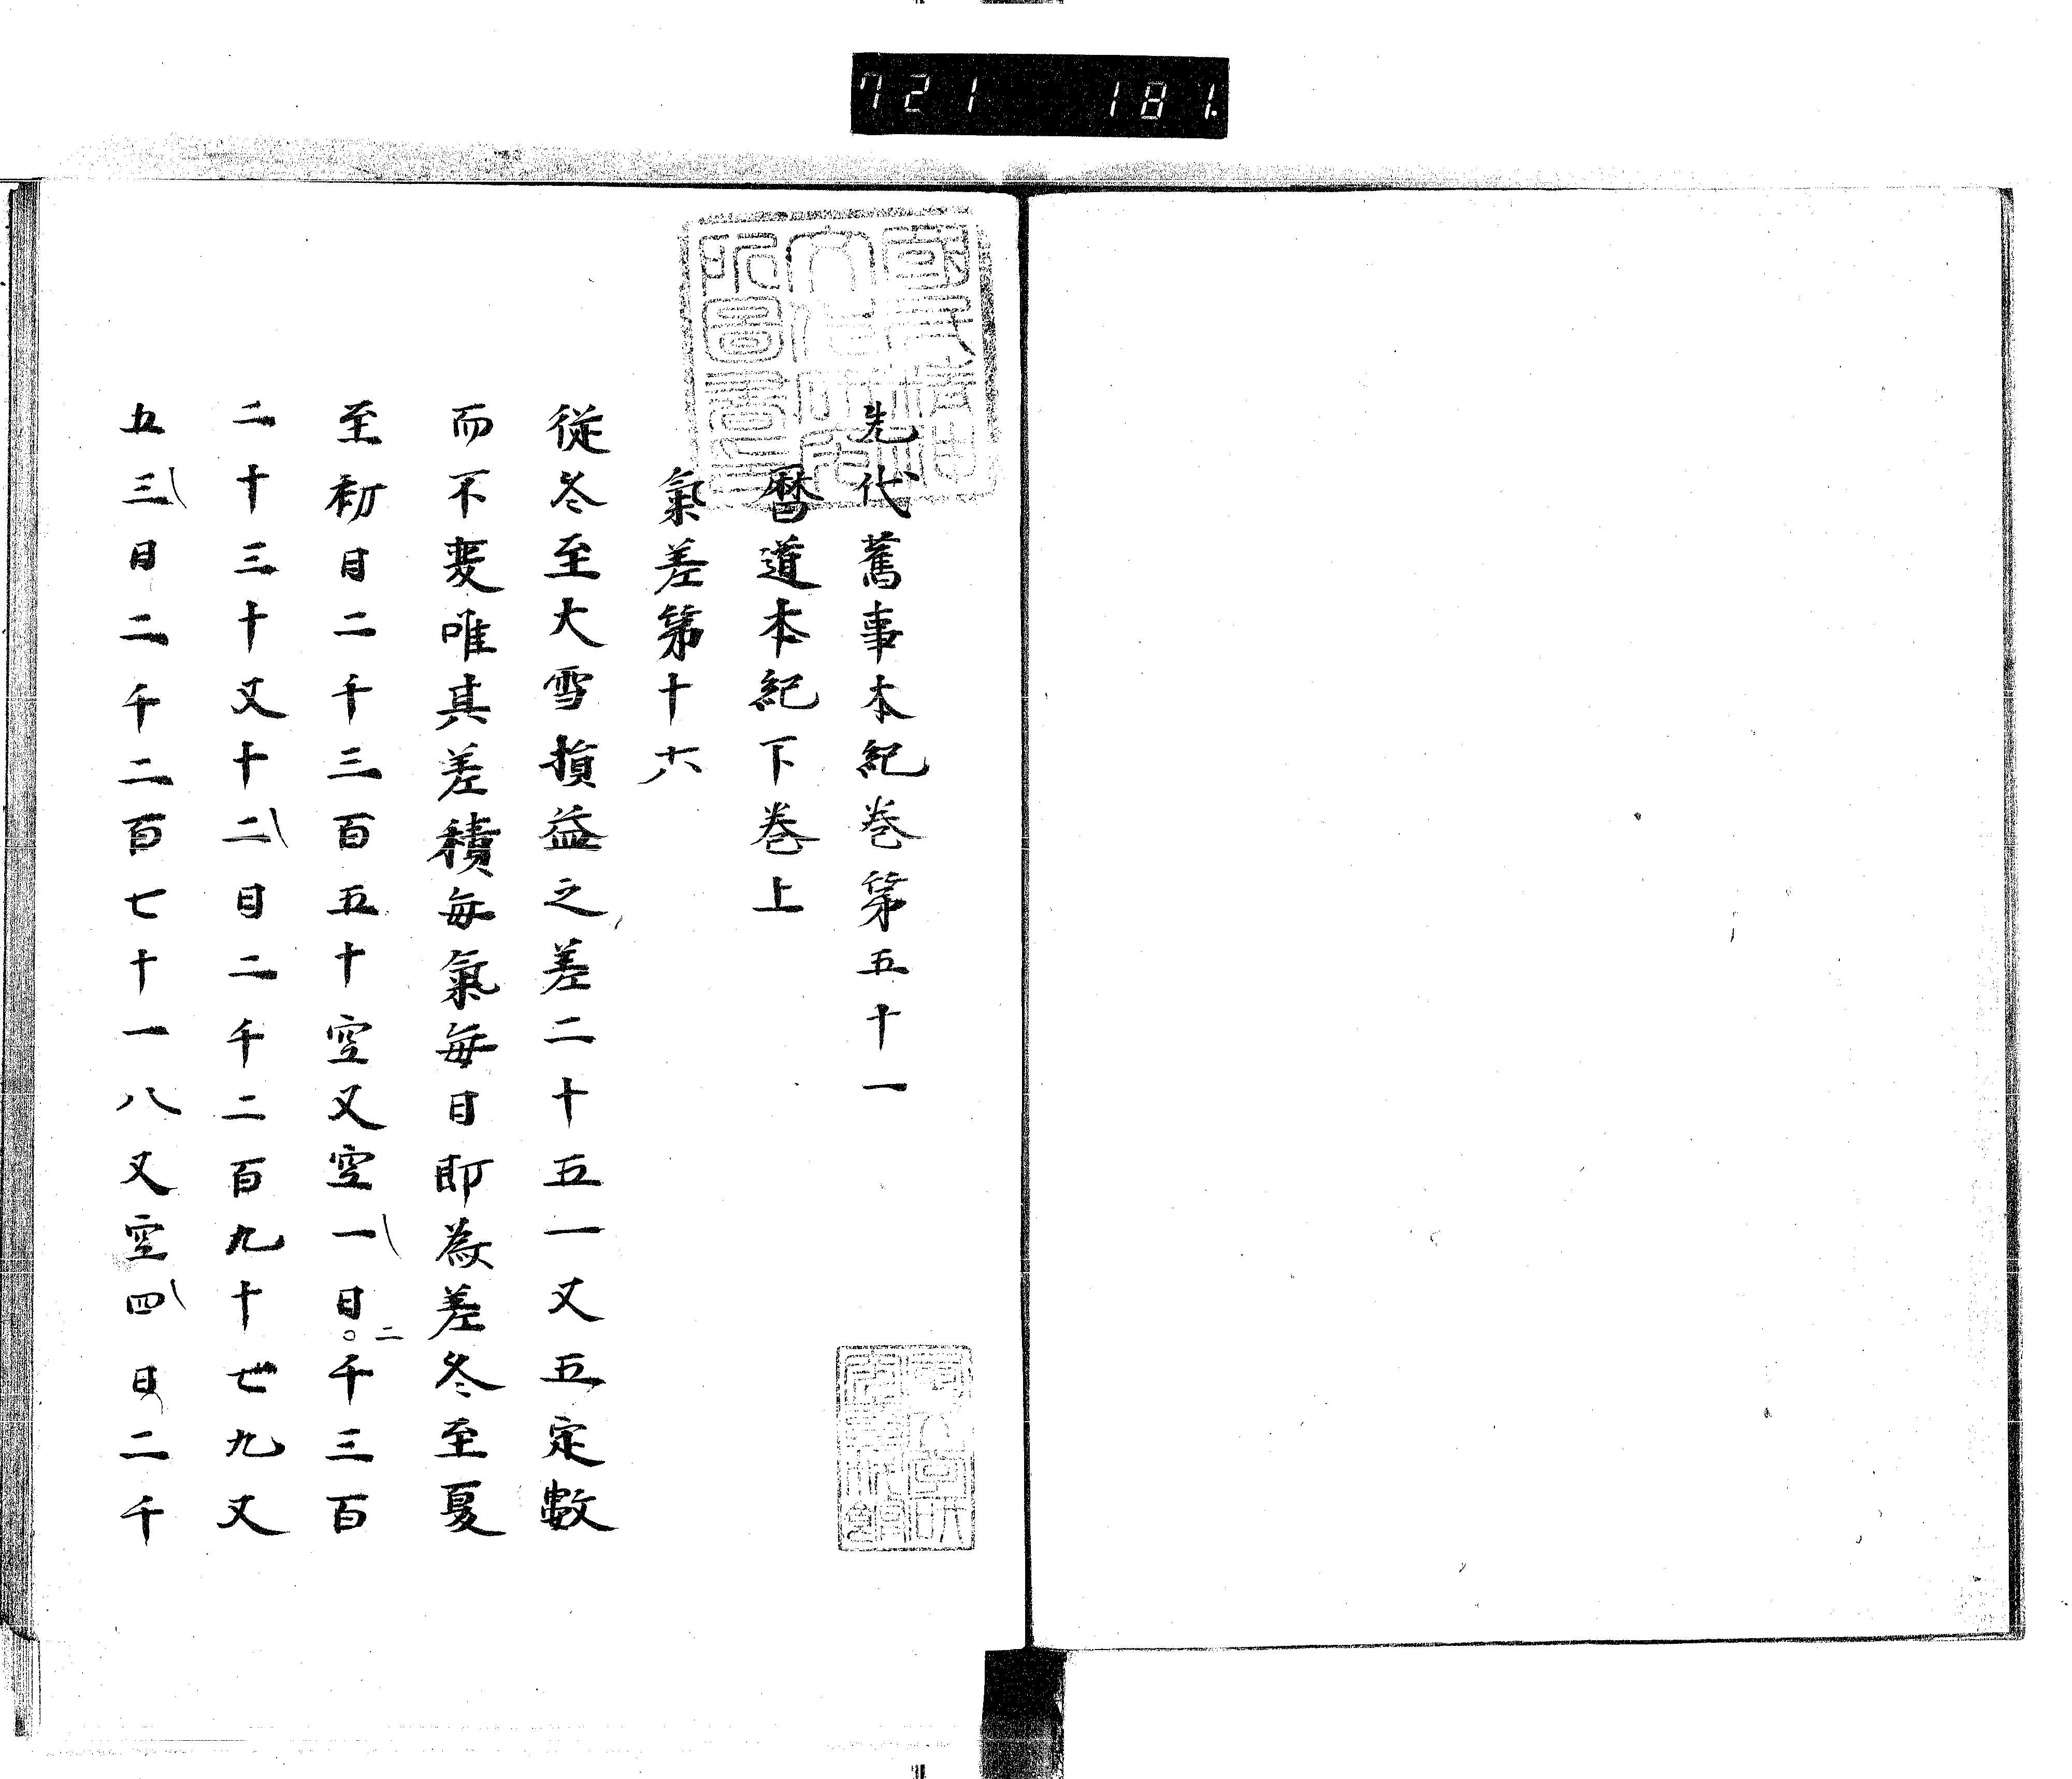 721 181.
國民精神文化研究所圖書之印
先代舊事本紀巻第五十一
曆道本紀下巻上
氣差第十六
從冬至大雪損益之差二十五一又五定數
而不変唯其差積每氣每日即為差冬至夏
至初日二千三百五十空又空一日。二千三百
二十三十又十二日二千二百九十七九又
五三日二千二百七十一八又空四日二千